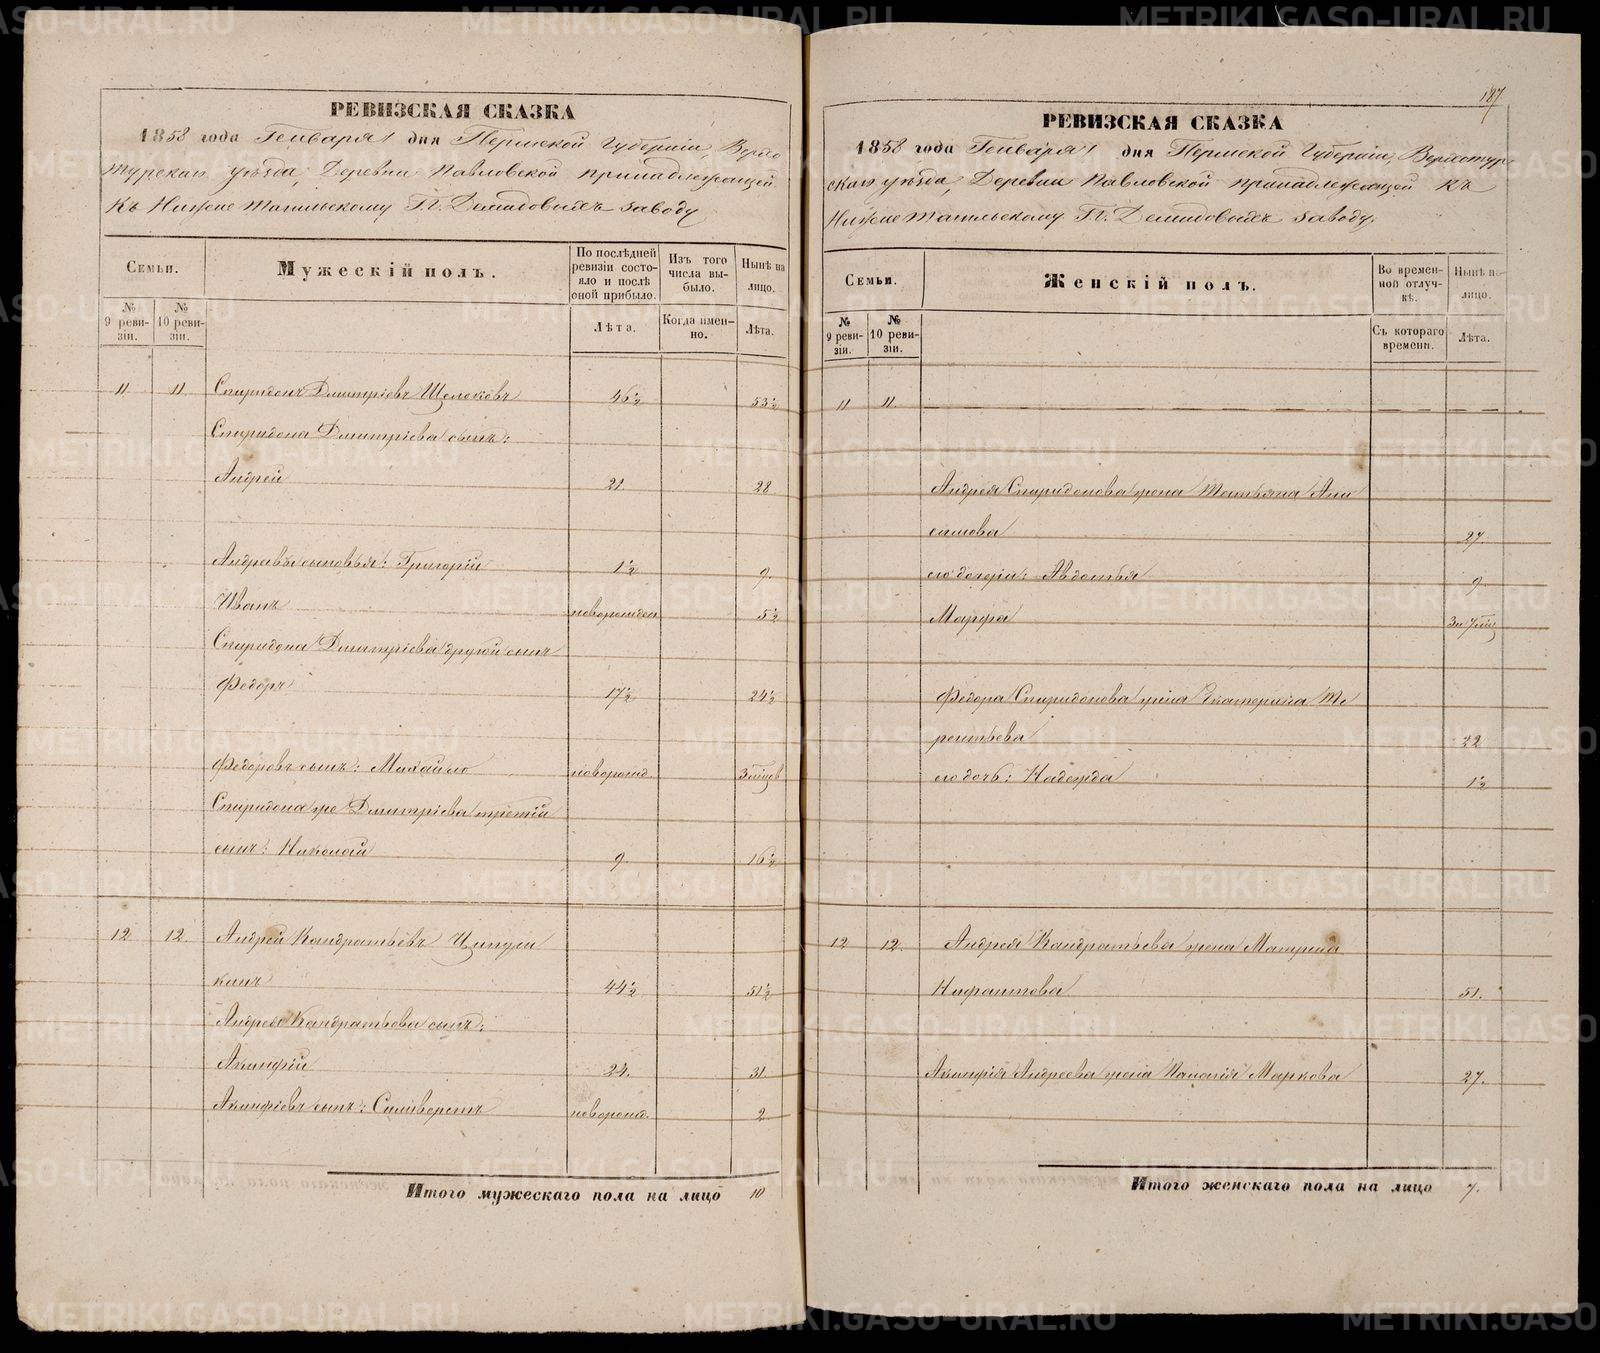 187
РЕВИЗСКАЯ СКАЗКА
1858 года Генваря 1 дня Пермской Губерніи, Верхо
турскаго уѣзда, Деревни Павловской принадлежащей
къ Нижне Тагильскому Гг. Демидовыхъ заводу
Семьи.
Мужескій полъ.
По послѣдней ревизіи состояло и послѣ оной прибыло.
Изъ того числа выбыло.
Нынѣ на лицо.
№ 9 ревизіи.
№ 10 ревизіи.
Лѣта.
Когда именно.
Лѣта.
11 11 Спиридонъ Дмитріевъ Щелоковъ 46½ 53½
Спиридона Дмитріева сынъ:
Андрей 21 28.
Андреевы сыновья: Григорій 1½ 9.
Иванъ новорожден 5½
Спиридона Дмитріева другой сынъ
Федоръ 17½ 24½
Федоровъ сынъ: Михайло новорожд. 3 мѣсяц.
Спиридона же Дмитріева третій
сынъ: Николай 9 16½
12 12. Андрей Кандратьевъ Ципули
кинъ 44½ 51½
Андрея Кандратьева сынъ:
Акинфій 24. 31
Акинфіевъ сынъ: Силиверстъ новорожд. 2
Итого мужескаго пола на лицо 10
РЕВИЗСКАЯ СКАЗКА
1858 года Генваря 1 дня Пермской Губерніи, Верхотур-
скаго уѣзда, Деревни Павловской принадлежащей къ
Нижне Тагильскому Гг. Демидовыхъ заводу.
Семьи.
Женскій полъ.
Во временной отлучкѣ.
Нынѣ на лицо.
№ 9 ревизіи.
№ 10 ревизіи.
Съ котораго времени.
Лѣта.
11 11.
Андрея Спиридонова жена Татьяна Ани
симова 27.
его дочери: Авдотья 9
Марфа
Федора Спиридонова жена Екатерина Те
рентьева 22
его дочь: Надежда 1½
12 12. Андрея Кандратьева жена Матрена
Нифантова 51.
Акинфія Андреева жена Палагія Маркова 27.
Итого женскаго пола на лицо 7.
METRIKI.GASO-URAL.RU